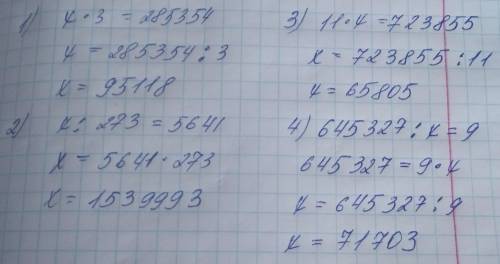 1) x · 3 = 285354
x = 285354 : 3
x = 95118
2) x : 273 = 5641
x = 5641 · 273
x = 1539993
3) 11 · x = 723855
x = 723855 : 11
x = 65805
4) 645327 : x = 9
645327 = 9 · x
x = 645327 : 9
x = 71703